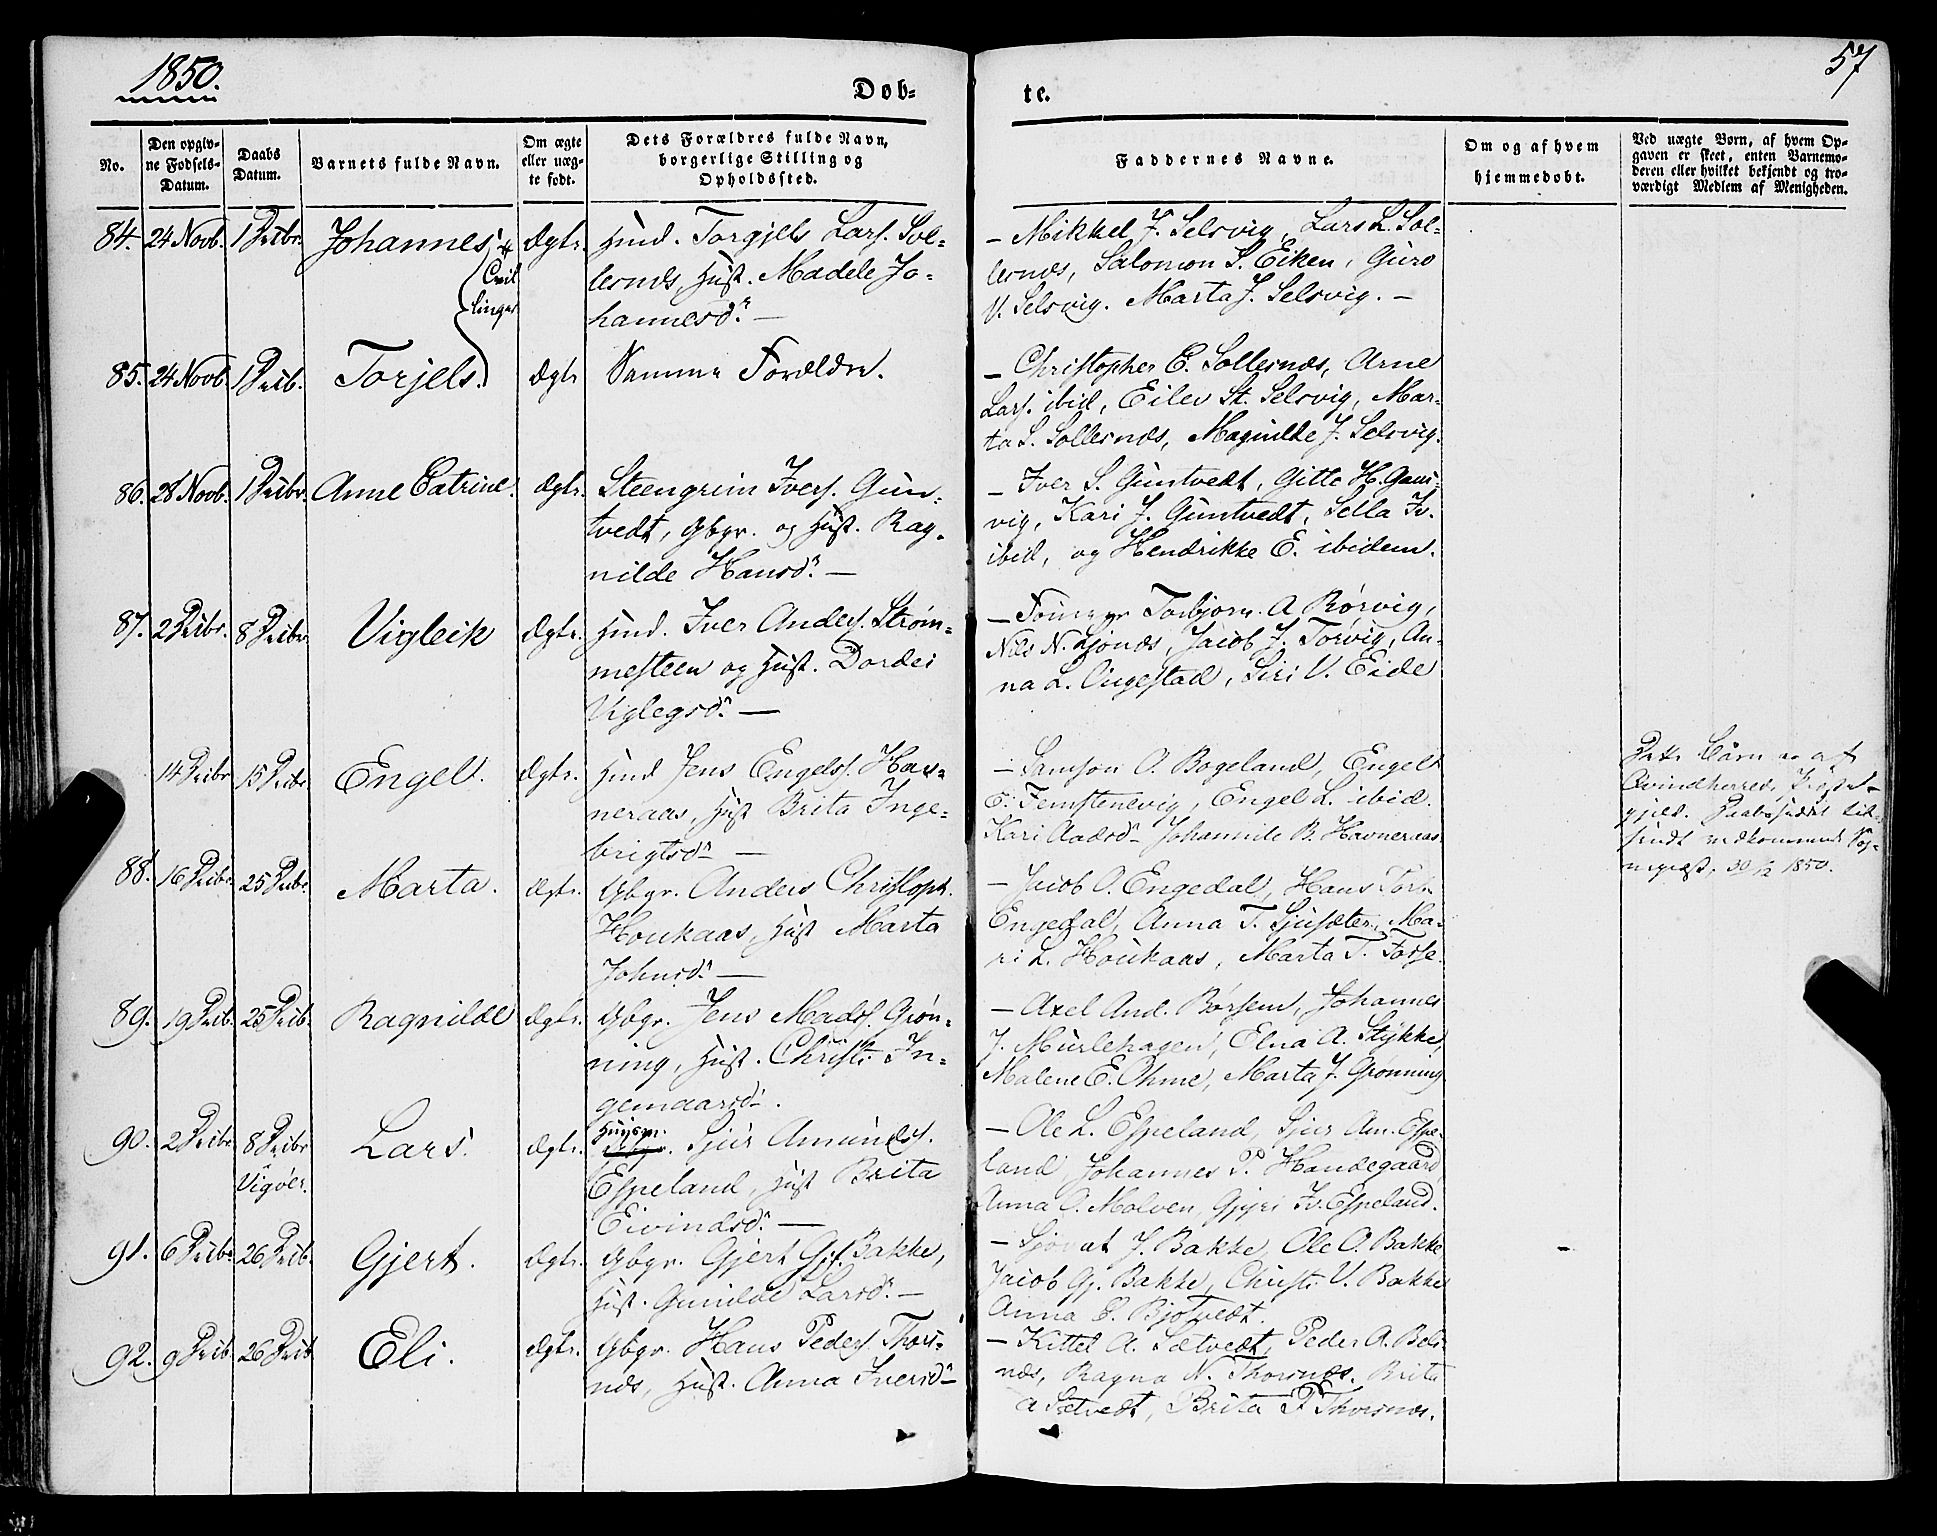 1850.
57
Døb-
te.
No.
Den opgiv-
ne Fødsels-
Datum.
Daabs
Datum.
Barnets fulde Navn.
Om ægte
eller uæg-
te født.
Dets Forældres fulde Navn,
borgerlige Stilling og
Opholdssted.
Faddernes Navne.
Om og af hvem
hjemmedøbt.
Ved uægte Børn, af hvem Op-
gaven er skeet, enten Barnemo-
deren eller hvilket bekjendt og tro-
værdigt Medlem af Menigheden.
84. 24 Novb. 1 Decbr. Johannes Ægte. Huusm. Torgjels Lars. Sol-
lesnæs, Hust. Madele Jo-
hannesdr. —
Tvil
linger
— Mikkel J. Selsvig, Lars L. Sol-
lesnæs, Salomon S. Eiken, Guro
V. Selsvig. Marta J. Selsvig. —
85. 24 Novb. 1 Decb. Torjels. Ægte Samme Forældre.
— Christopher E. Sollesnæs, Arne
Lars. ibid, Eilev St. Selsvig, Mar-
ta S. Sollesnæs, Magnilde J. Selsvig.
86. 28 Novb. 1 Decbr. Anne Catrine. Ægte. Steengrim Ivers. Gun-
tvedt, Gbgr. og Hust. Rag-
nilde Hansdr. —
— Iver S. Guntvedt, Gitte H. Gaus-
vig, Kari J. Guntvedt, Sella Iv.
ibid, og Hendrikke E. ibidem.
87. 2 Decbr. 8 Decbr. Vigleik Ægte. Iver Anders. Strøm-
mesteen og Hust. Dordei
Viglegsdr. —
Torbjørn. A Rørvig,
Nils N. Kjonæs, Jacob J. Torvig, An-
na L. Ougestad, Siri V. Eide
14 Decbr 15 Decbr Engel. Ægte. Jens Engels. Hav-
neraas, Hust Brita Inge-
brigtsdr —
— Samson O. Bogeland, Engel
E. Femstenevig, Engel L. ibid.
Kari Aadsdr Johannile B. Havneraas.
Dette Barn er af
Qvindherreds Præste-
gjeld. Daabsseddel til-
sendt vedkommende Sog-
nepræst, 30/12 1850.
88. 16 Decbr. 25 Decbr. Marta. Ægte. Gbgr. Anders Christoph.
Houkaas, Hust Marta
Johnsdr. —
— Jacob O. Engedal, Hans Tort.
Engedal, Anna T. Sjusæter, Ma-
ri L. Houkaas, Marta T. Fosse.
89. 19 Decb. 25 Decb. Ragnilde Ægte. Gbgr. Jens Mads. Grøn-
ning, Hust. Christi In-
gemaarsdr.
— Axel And. Børsem, Johannes
J. Murlehagen, Elna A. Stykke,
Malene E. Ohme, Marta J. Grønning
90. 2 Decbr 8 Decbr Lars. Ægte. Huusm. Sjur Amunds.
Vigøer.
Espeland, Hust Brita
Eivindsdr. —
— Ole L. Espeland, Sjur Am. Espe-
land, Johannes P. Handegaard,
Anna O. Molven, Gjyri Iv. Espeland.
91. 6 Decbr 26 Decb. Gjert. Ægte. Gbgr. Gjert Gj. Bakke,
Hust. Gunilde Larsdr. —
— Sjovat J. Bakke, Ole O. Bakke
Jacob Gj. Bakke, Christi V. Bakke
Anna E. Bjotvedt.
92. 9 Decb 26 Decb Eli. Ægte. Gbgr. Hans Peders. Thors-
næs, Hust. Anna Iversdr —
— Kittel A. Sætvedt, Peder A. Bels-
næs, Ragna N. Thorsnæs. Brita
A Sætvedt, Brita P Thorsnæs.